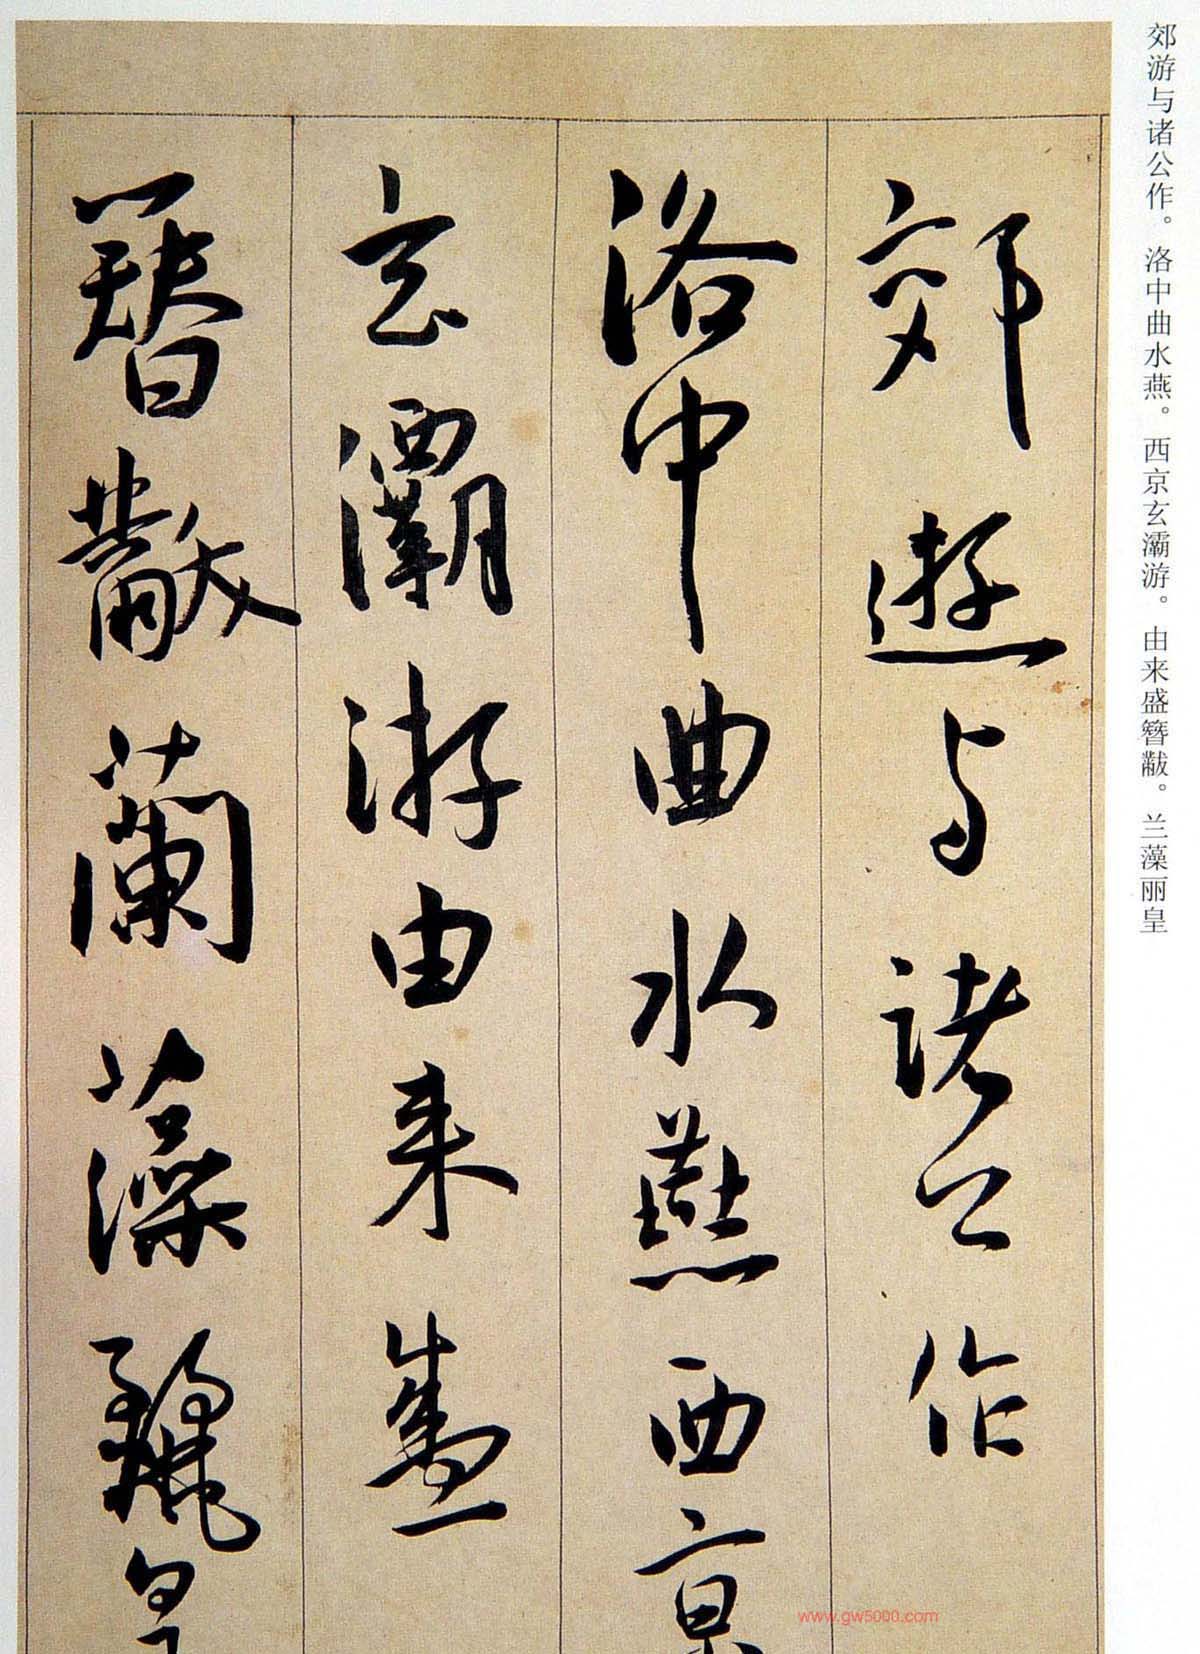 郊遊与諸公作
洛中曲水燕西京
玄灞游由来盛
簪黻蘭藻麗皇
郊游与诸公作。洛中曲水燕。西京玄灞游。由来盛簪黻。兰藻丽皇
www.gw5000.com